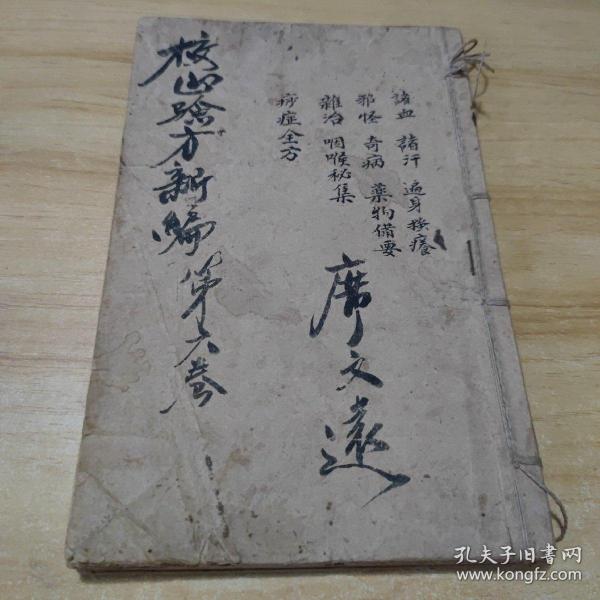 諸血 諸汗 遍身搔癢
邪怪 奇病 藥物備要
雜治 咽喉秘集
痧症全方
席文遠
校正驗方新編第六卷
孔夫子旧书网
www.kongfz.com